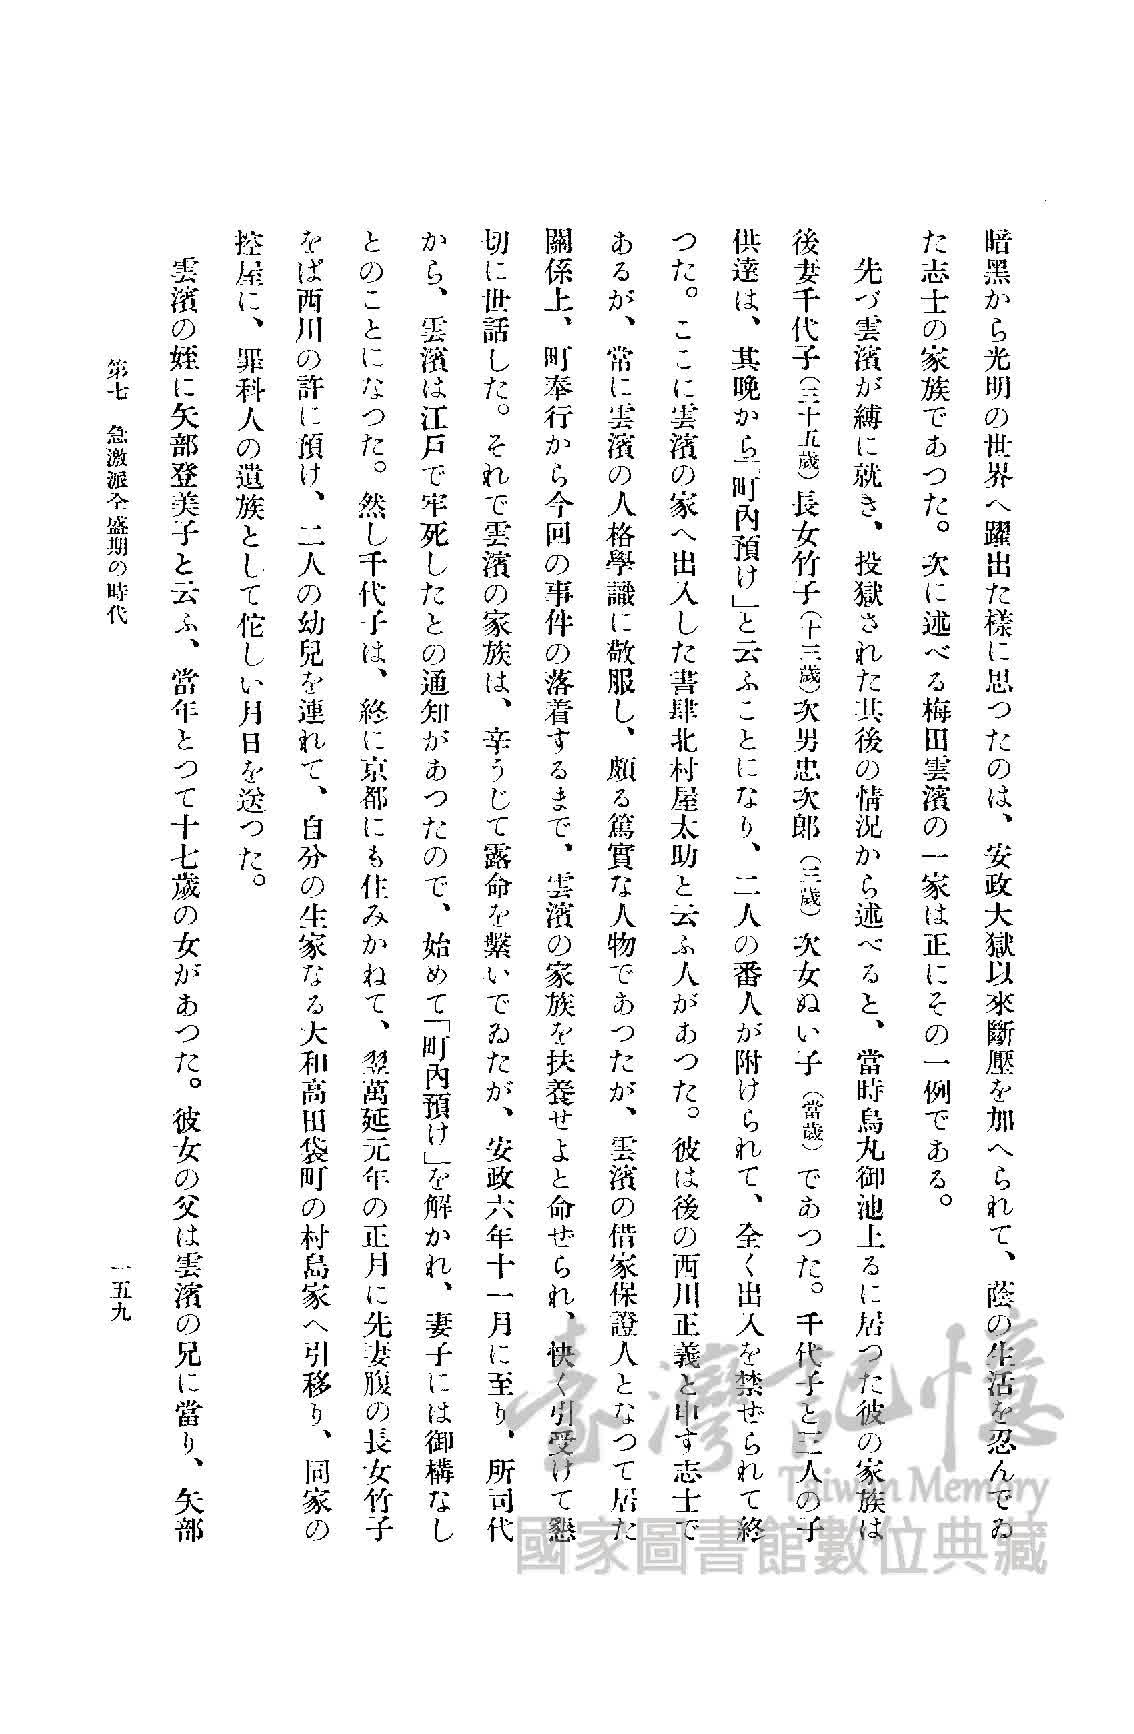 暗黑から光明の世界へ躍出た樣に思つたのは、安政大獄以來斷壓を加へられて、蔭の生活を忍んでゐ
た志士の家族であつた。次に述べる梅田雲濱の一家は正にその一例である。
先づ雲濱が縛に就き、投獄された其後の情況から述べると、當時烏丸御池上るに居つた彼の家族は
後妻千代子(三十五歲)長女竹子(十三歲)次男忠次郎(三歲)次女ぬい子(當歲)であつた。千代子と三人の子
供達は、其晚から「町內預け」と云ふことになり、二人の番人が附けられて、全く出入を禁ぜられて終
つた。ここに雲濱の家へ出入した書肆北村屋太助と云ふ人があつた。彼は後の西川正義と申す志士で
あるが、常に雲濱の人格學識に敬服し、頗る篤實な人物であつたが、雲濱の借家保證人となつて居た
關係上、町奉行から今回の事件の落着するまで、雲濱の家族を扶養せよと命ぜられ、快く引受けて懇
切に世話した。それで雲濱の家族は、辛うじて露命を繫いでゐたが、安政六年十一月に至り、所司代
から、雲濱は江戶で牢死したとの通知があつたので、始めて「町內預け」を解かれ、妻子には御構なし
とのことになつた。然し千代子は、終に京都にも住みかねて、翌萬延元年の正月に先妻腹の長女竹子
をば西川の許に預け、二人の幼兒を連れて、自分の生家なる大和高田袋町の村島家へ引移り、同家の
控屋に、罪科人の遺族として佗しい月日を送つた。
雲濱の姪に矢部登美子と云ふ、當年とつて十七歲の女があつた。彼女の父は雲濱の兄に當り、矢部
第七 急激派全盛期の時代
一五九
臺灣記憶
Taiwan Memory
國家圖書館數位典藏